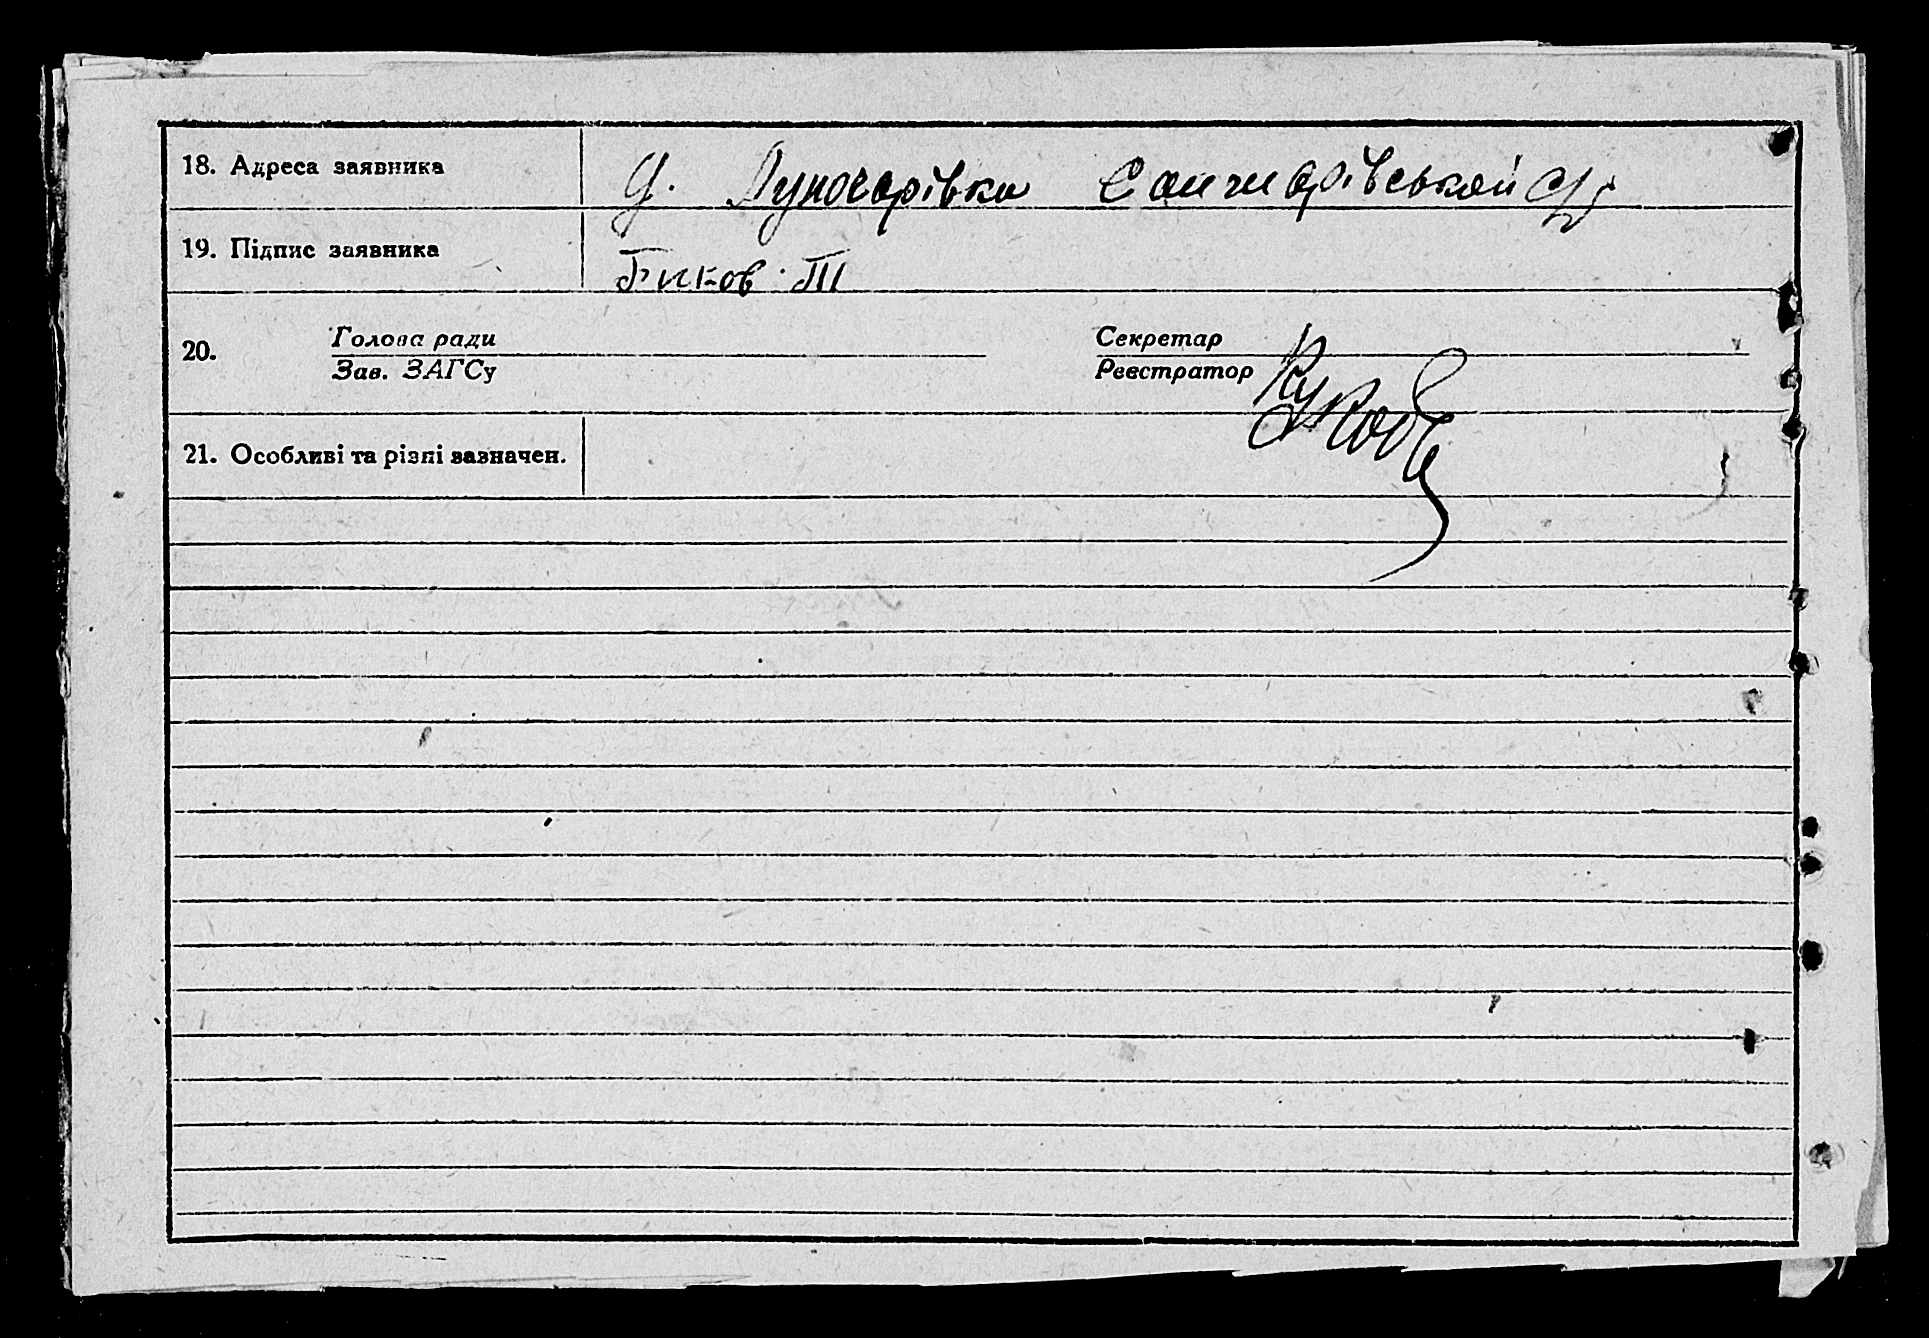 18. Адреса заявника д. Луночарівка Санчарівської с/р
19. Підпис заявника Биков Т
20. Голова ради Секретар
Зав. ЗАГСу Реєстратор
21. Особливі та різні зазначен.